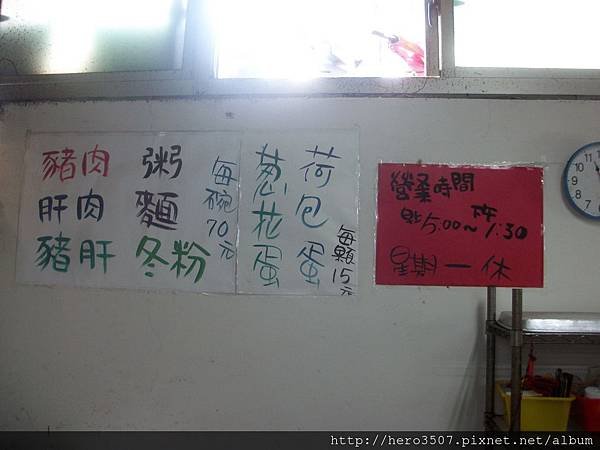 豬肉 粥
肝肉 麵
豬肝 冬粉
每碗70元
荷包蛋
蔥花蛋
每顆15元
營業時間
5:00~ 1:30
星期一休
http://hero3507.pixnet.net/album